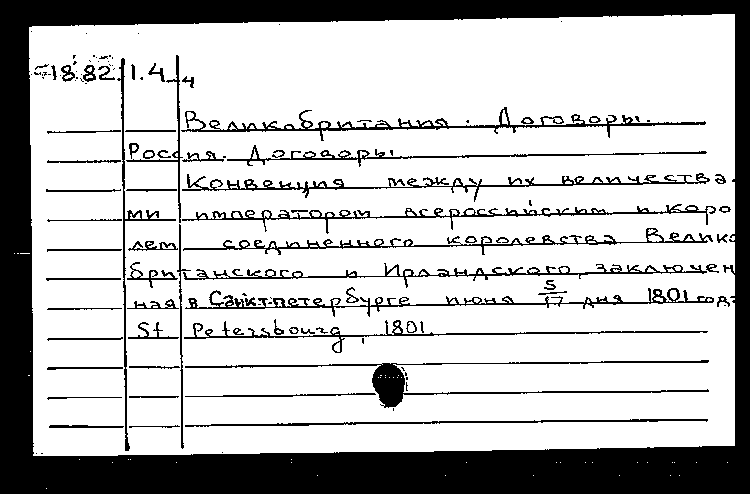 18.82.1.4-4
Великобритания. Договоры.
Россия. Договоры
Конвенция между их величества-
ми императором всероссийским и коро
лем соединенного королевства Велико
британского и Ирландского, заключен
ная в Санкт-петербурге июня 5/17 дня 1801 года
St Petersbourg, 1801.